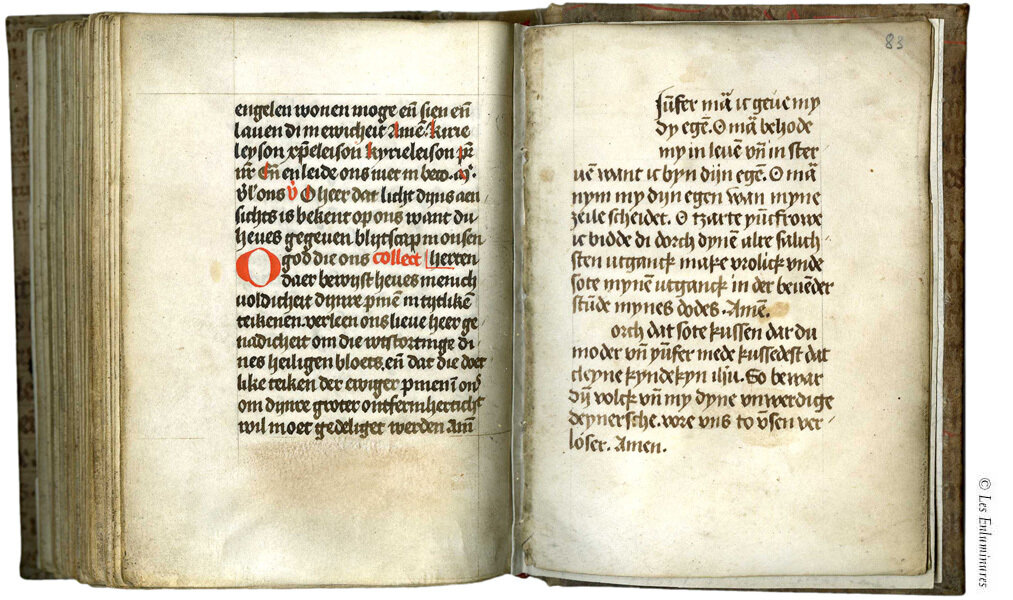 engelen wonen moge en̄ sien en̄
lauen di in ewicheit Amē. kirie
leyson xp̄eleison kyrieleison pr̄
nr̄ En̄ en leide ons niet in beco. aṡ.
v̄l' ons v̇ O heer dat licht dijns aen
sichts is bekent op ons want du
heues gegeuen blijtscap in onsen
O god die ons collect herten
daer bewijst heues menich
uoldicheit dijnre pinē in tytlikē
teikenen. verleen ons lieue heer ge
nadicheit om die wtstortinge di
nes heiligen bloets, en̄ dat die doer
like teiken der ewiger pinen ī
om dijnre groter ontfermhertich
wil moet gedeliget werden Am̄
83
Jūfer mā ic geue my
dy egē. O mā behode
my in leuē vn̄ in ster
uē want ic byn dijn egē. O mā
nym my dijn egen wan myne
zeile scheidet. O tzarte yūcfrowe
ic bidde di dorch dynē alre salich
sten utganck make vrolick vnde
sote mynē utganck in der beuēder
stūde mynes dodes. Amē.
Orch dat sote kussen dat du
moder vn̄ yūfer mede kussedest dat
cleyne kyndekyn ihū. So bewar
dij volck vn̄ my dyne vnwerdige
deynersche. vore vns to v̄sen ver
löser. Amen.
© Les Enluminures